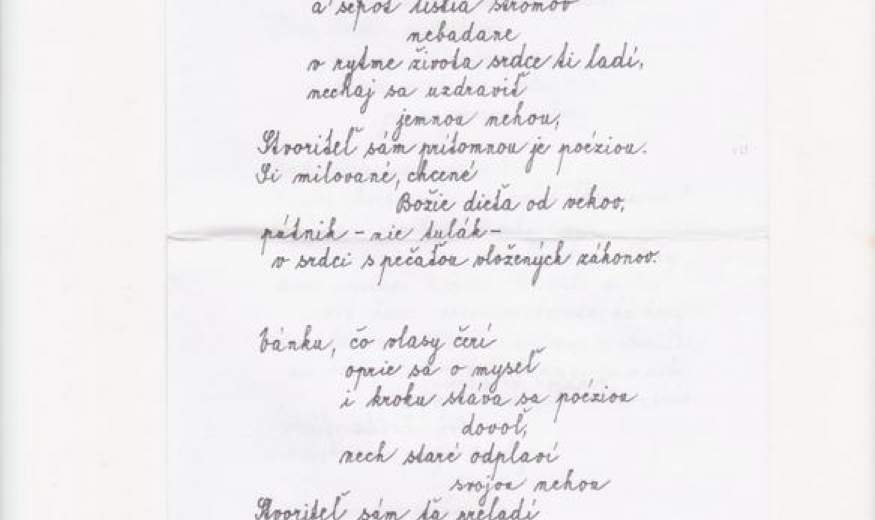 a šepot lístia stromov
nebadane
v rytme života srdce ti ladí,
nechaj sa uzdraviť
jemnou nehou,
Stvoriteľ sám prítomnou je poéziou.
Si milované, chcené
Božie dieťa od vekov,
pútnik - nie tulák -
v srdci s pečaťou vložených zákonov.
Vánku, čo vlasy čerí
oprie sa o myseľ
i kroku stáva sa poéziou
dovoľ,
nech staré odplaví
svojou nehou
Stvoriteľ sám ťa preladí